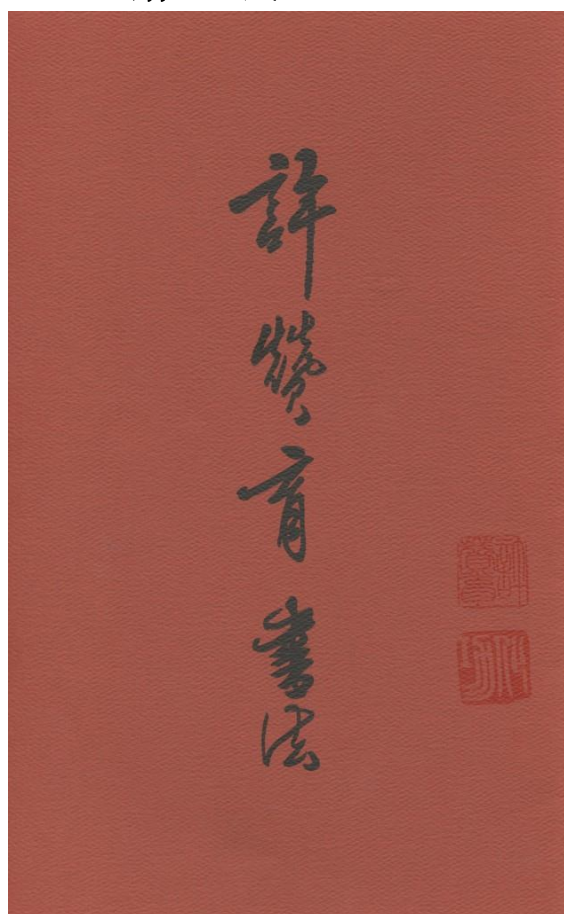 許贊育書法